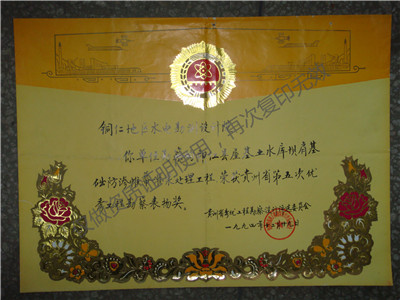 铜仁地区水电勘测设计院
你单位 县座基业水库坝肩基
础防渗帷幕 处理工程 荣获贵州省第五次优
秀工程勘察表扬奖。
贵州省优秀工程勘察设计评选委员会
一九九四年
仅做资质证明使用，再次复印无效